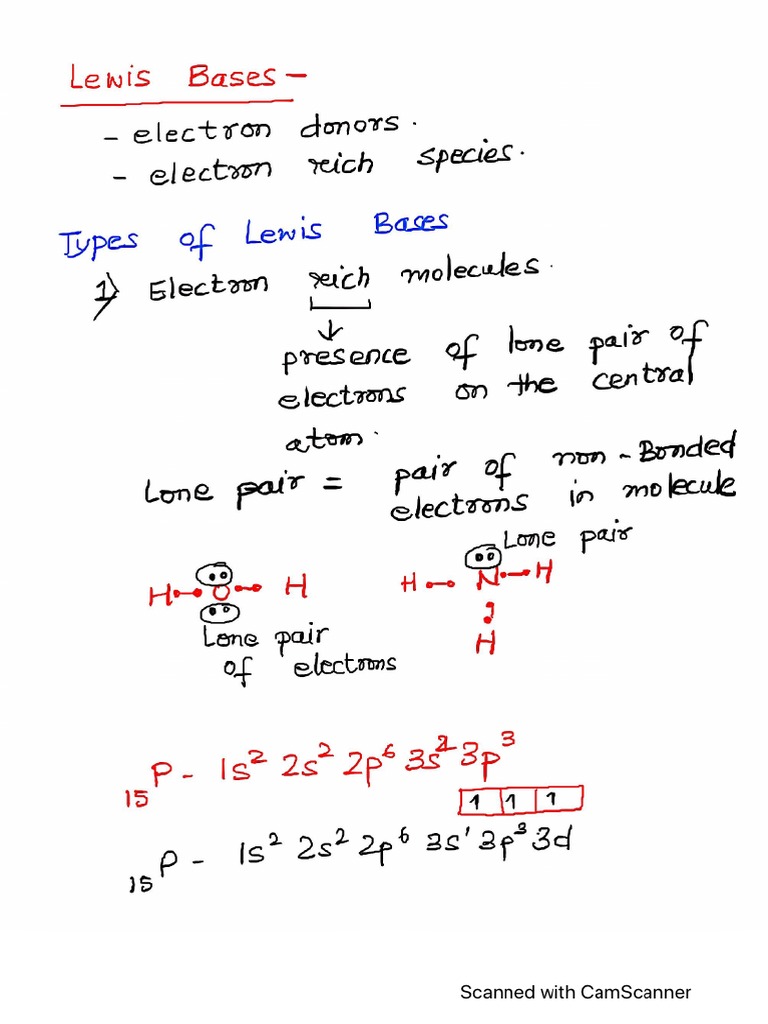 Lewis Bases -
- electron donors.
- electron rich species.
Types of Lewis Bases
1) Electron rich molecules.
↓
presence of lone pair of
electrons on the central
atom.
Lone pair = pair of non-Bonded
electrons in molecule
Lone pair
H O H
H N H
H
Lone pair
of electrons
15P - 1s² 2s² 2p⁶ 3s² 3p³
1 1 1
15P - 1s² 2s² 2p⁶ 3s¹ 3p³ 3d
Scanned with CamScanner